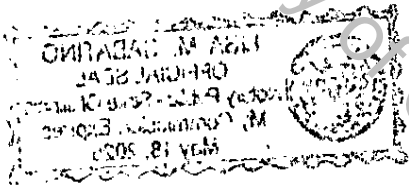 LISA M. SABATINO
OFFICIAL SEAL
Notary Public - State of
My Commission Expires
May 18, 2025
y of